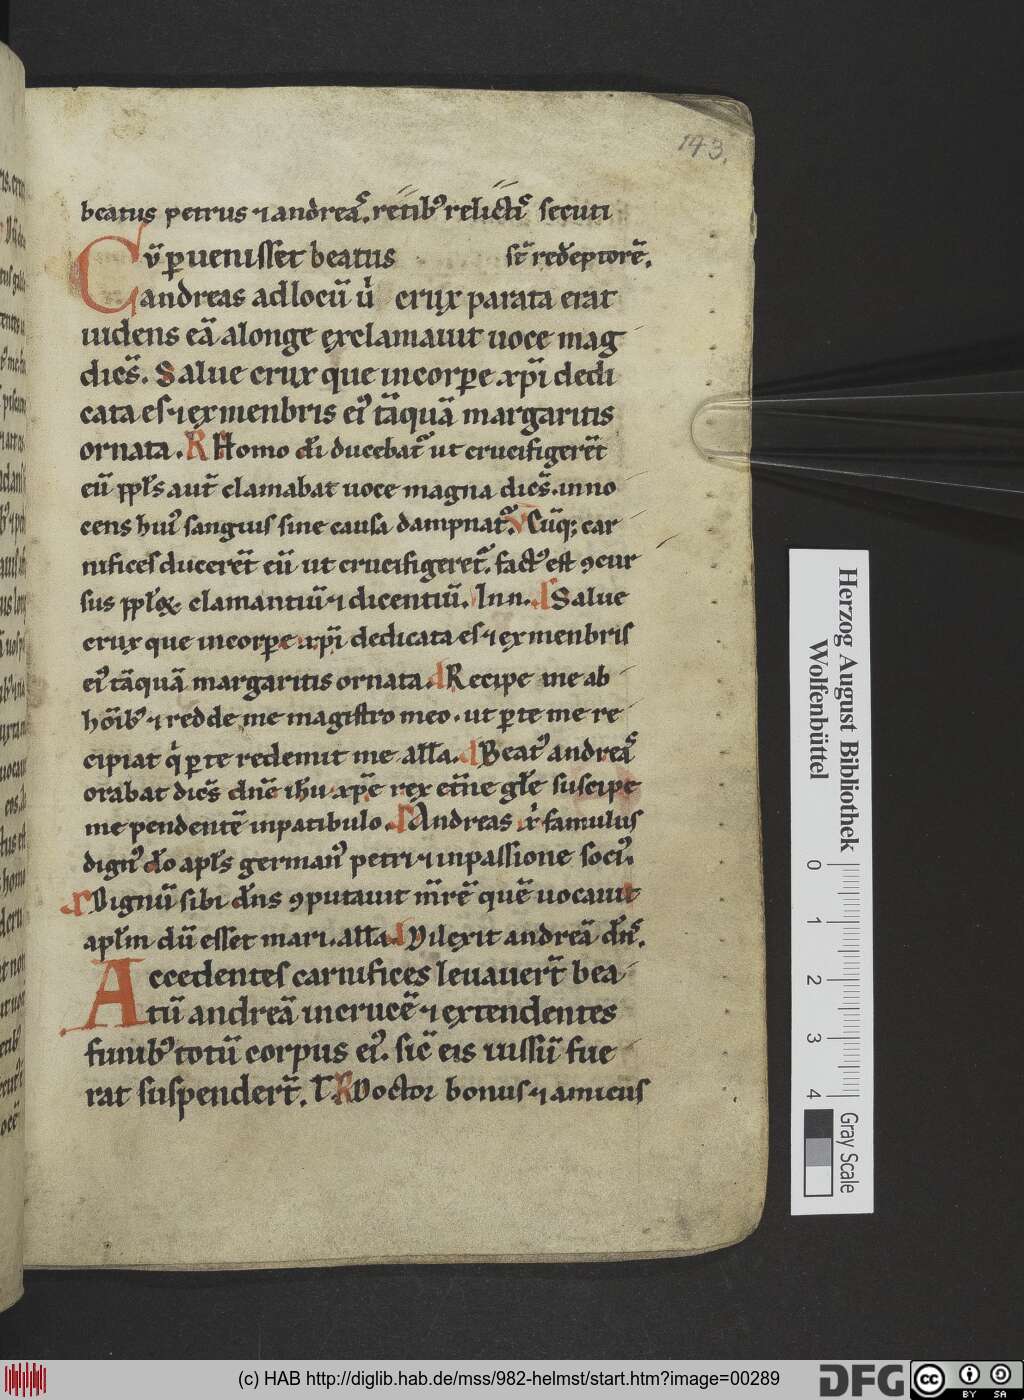 143.
beatus petrus ⁊ andreaˢ. retibꝰ relictiˢ secuti
Cū ꝑuenisset beatus st̄ rede͂ptorē.
andreas ad locū ubi crux parata erat
uidens eā a longe exclamauit uoce mag
dicēs. Salue crux que in corpore xp̄i dedi
cata es ⁊ ex menbris eiꝰ tāquā margaritis
ornata. R Homo di͛ ducebat᷑ ut crucifigerēt
eū ppl͛s aut̄ clamabat uoce magna dicēs. inno
cens huiꝰ sanguis sine causa dampnat᷑. V Cūq; car
nifices ducerēt eū ut crucifigeret᷑. factꝰ est ꝯcur
sus ppl͛oꝝ clamantiū ⁊ dicentiū. Inn. Salue
crux que in corpore xp̄i dedicata es ⁊ ex menbris
eiꝰ tāquā margaritis ornata. Recipe me ab
hōibꝰ ⁊ redde me magistro meo. ut ꝑ te me re
cipiat qͥ ꝑ te redemit me all͛a. Beatꝰ andreaˢ
orabat dicēs dn̄e ihu xp̄e rex et̄ne gl͛e suscipe
me pendentē in patibulo. Andreas xͥ famulus
dignꝰ do͛ apl͛s germanꝰ petri ⁊ in passione sociꝰ.
Dignū sibi dn͛s ꝯputauit m̄rē quē uocauit
apl͛m dū esset in mari. all͛a. Dilexit andreā dn͛s.
Accedentes carnifices leuauer̄t bea
tū andreā in crucē ⁊ extendentes
funibꝰ totū corpus eiꝰ. sic͛ eis iussū fue
rat suspender̄t. T. R Doctor bonus ⁊ amicus
Herzog August Bibliothek
Wolfenbüttel
0 1 2 3 4
Gray Scale
(c) HAB http://diglib.hab.de/mss/982-helmst/start.htm?image=00289
DFG
cc BY SA